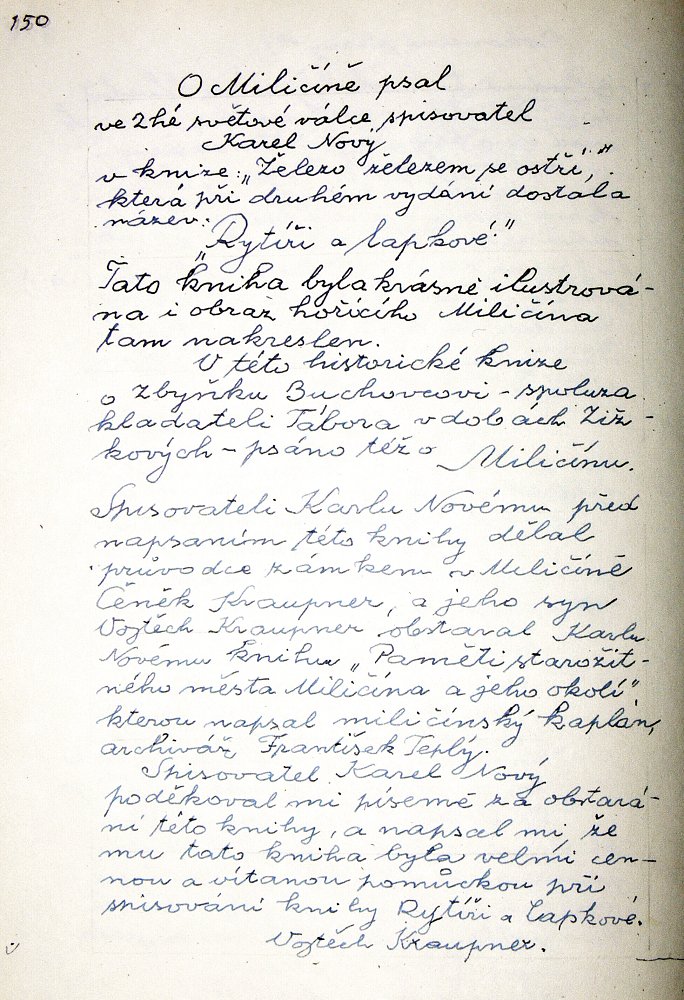 150
O Miličíně psal
ve 2hé světové válce spisovatel
Karel Nový
v knize: „Železo železem se ostří,"
která při druhém vydání dostala
název:
„Rytíři a lapkové."
Tato kniha byla krásně ilustrová-
na i obraz hořícího Miličína
tam nakreslen.
V této historické knize
o Zbyňku Buchovcovi - spoluza
kladateli Tábora v dobách Žiž-
kových - psáno též o Miličínu.
Spisovateli Karlu Novému před
napsaním této knihy dělal
průvodce zámkem v Miličíně
Čeněk Kraupner, a jeho syn
Vojtěch Kraupner obstaral Karlu
Novému knihu „Paměti starožit-
ného města Miličína a jeho okolí"
kterou napsal miličínský kaplán,
archivář, František Teplý.
Spisovatel Karel Nový
poděkoval mi písemě za obstará-
ní této knihy, a napsal mi, že
mu tato kniha byla velmi cen-
nou a vítanou pomůckou při
spisování knihy Rytíři a lapkové.
Vojtěch Kraupner.